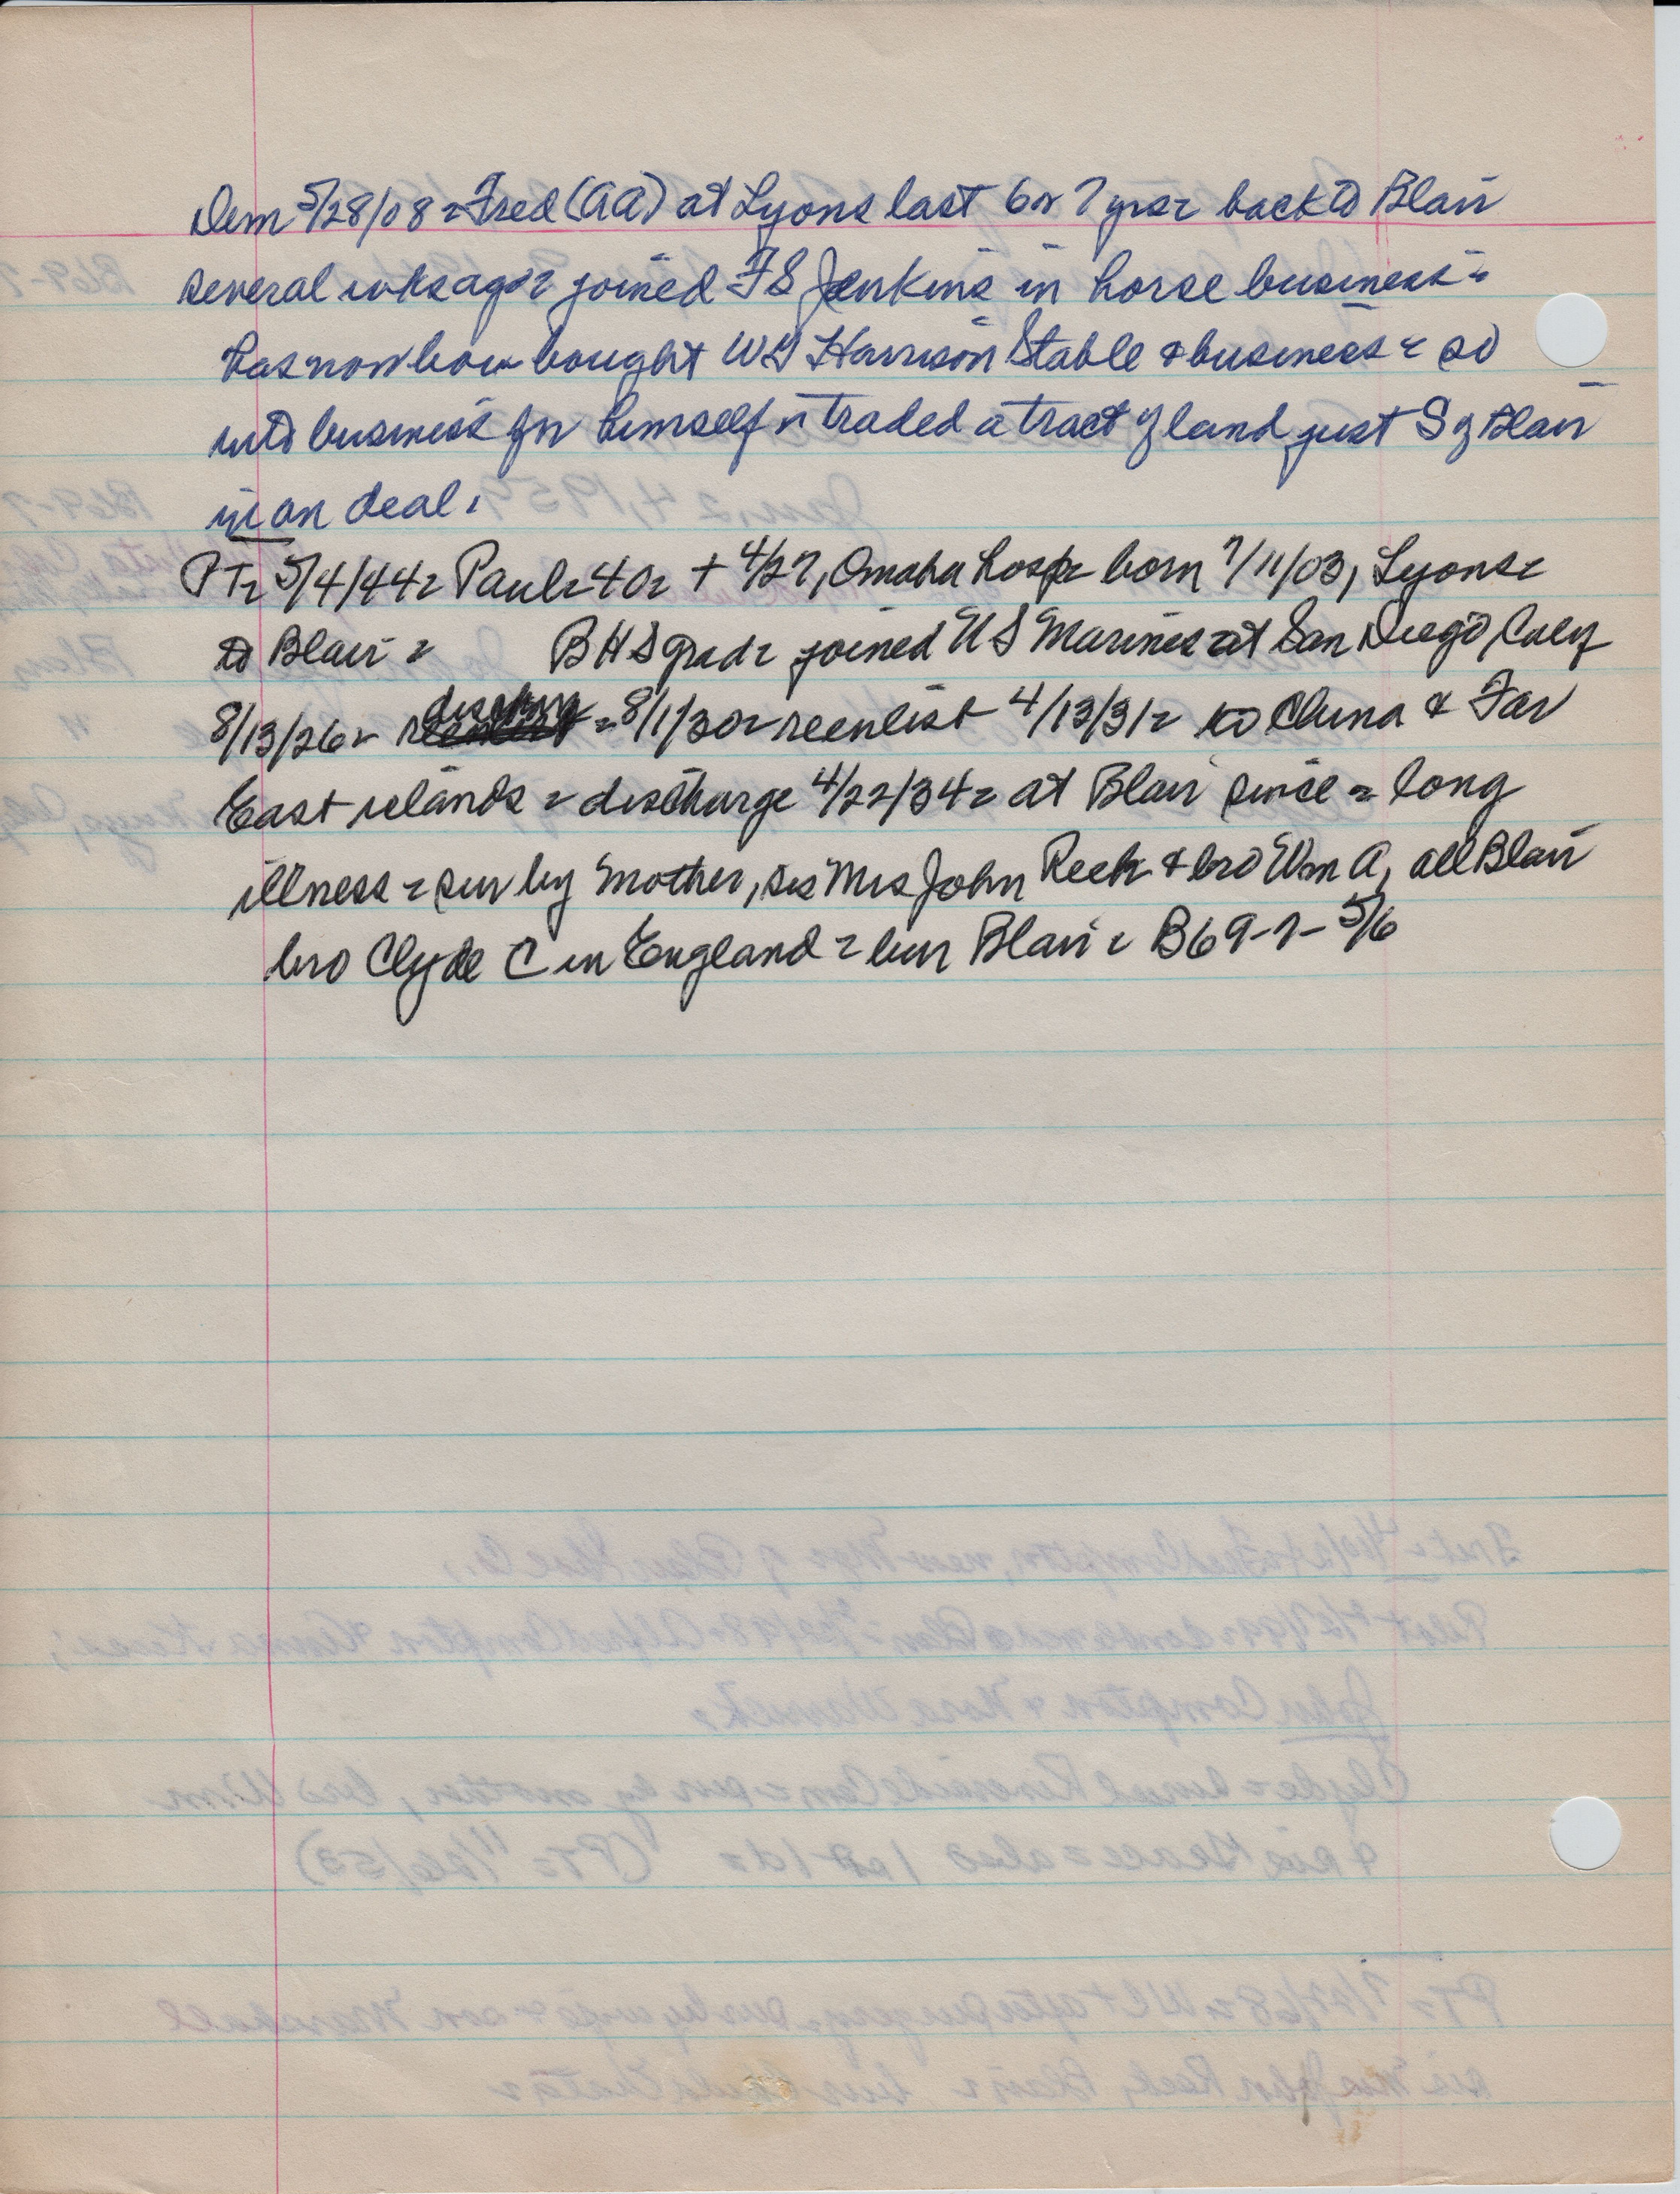 Dem 5/28/08 = Fred (AA) at Lyons last 6 or 7 yrs = back to Blair
several wks ago = joined FS Jenkins in horse business =
has now bought WG Harrison Stable & business = so
into business for himself = traded a tract of land just S of Blair
in on deal.
PT = 5/4/44 = Paul = 40 = + 4/27, Omaha hosp = born 7/11/03, Lyons =
to Blair = BHS grad = joined US Marines at San Diego, Calif
8/13/26 = discharg = 8/1/30 = reenlist 4/13/31 = to China & Far
East islands = discharge 4/22/34 = at Blair since = long
illness = sur by mother, sis Mrs John Reek & bro Wm A, all Blair
bro Clyde C in England = bur Blair = B69-7-5/6